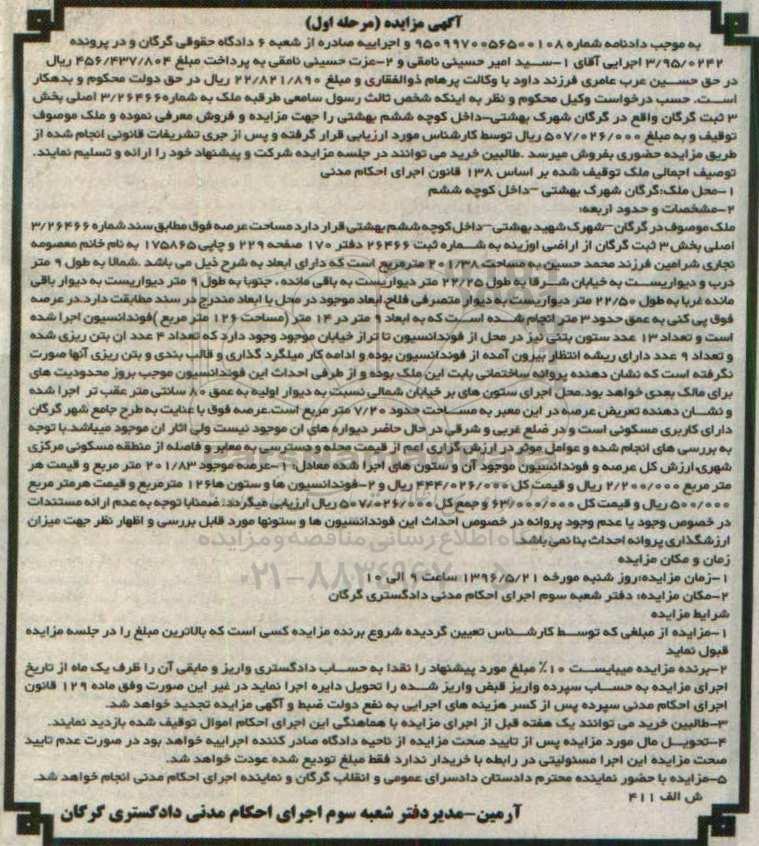 آگهی مزایده (مرحله اول)
به موجب دادنامه شماره ۹۵۰۹۹۷۰۰۵۶۵۰۰۱۰۸ و اجراییه صادره از شعبه ۶ دادگاه حقوقی گرگان و در پرونده
۳/۹۵/۰۲۴۲ اجرایی آقای ۱-سید امیر حسینی نامقی و ۲-عزت حسینی نامقی به پرداخت مبلغ ۴۵۶/۴۳۷/۸۰۴ ریال
در حق حسین عرب عامری فرزند داود با وکالت پرهام ذوالفقاری و مبلغ ۲۲/۸۲۱/۸۹۰ ریال در حق دولت محکوم و بدهکار
است. حسب درخواست وکیل محکوم و نظر به اینکه شخص ثالث رسول سامعی طرقبه ملک به شماره ۳/۲۶۴۶۶ اصلی بخش
۳ ثبت گرگان واقع در گرگان شهرک بهشتی-داخل کوچه ششم بهشتی را جهت مزایده و فروش معرفی نموده و ملک موصوف
توقیف و به مبلغ ۵۰۷/۰۲۶/۰۰۰ ریال توسط کارشناس مورد ارزیابی قرار گرفته و پس از جری تشریفات قانونی انجام شده از
طریق مزایده حضوری بفروش میرسد .طالبین خرید می توانند در جلسه مزایده شرکت و پیشنهاد خود را ارائه و تسلیم نمایند.
توصیف اجمالی ملک توقیف شده بر اساس ۱۳۸ قانون اجرای احکام مدنی
۱-محل ملک:گرگان شهرک بهشتی -داخل کوچه ششم
۲-مشخصات و حدود اربعه:
ملک موصوف در گرگان-شهرک شهید بهشتی-داخل کوچه ششم بهشتی قرار دارد مساحت عرصه فوق مطابق سند شماره ۳/۲۶۴۶۶
اصلی بخش ۳ ثبت گرگان از اراضی اوزینه به شماره ثبت ۲۶۴۶۶ دفتر ۱۷۰ صفحه ۲۲۹ و چاپی ۱۷۵۸۶۵ به نام خانم معصومه
نجاری شرامین فرزند محمد حسین به مساحت ۲۰۱/۳۸ مترمربع است که دارای ابعاد به شرح ذیل می باشد .شمالا به طول ۹ متر
درب و دیواریست به خیابان شرقا به طول ۲۲/۲۵ متر دیواریست به باقی مانده ، جنوبا به طول ۹ متر دیواریست به دیوار باقی
مانده غربا به طول ۲۲/۵۰ متر دیواریست به دیوار متصرفی فلاح.ابعاد موجود در محل با ابعاد مندرج در سند مطابقت دارد.در عرصه
فوق پی کنی به عمق حدود ۳ متر انجام شده است که به ابعاد ۹ متر در ۱۴ متر (مساحت ۱۲۶ متر مربع )فوندانسیون اجرا شده
است و تعداد ۱۳ عدد ستون بتنی نیز در محل از فوندانسیون تا تراز خیابان موجود وجود دارد که تعداد ۴ عدد ان بتن ریزی شده
و تعداد ۹ عدد دارای ریشه انتظار بیرون آمده از فوندانسیون بوده و ادامه کار میلگرد گذاری و قالب بندی و بتن ریزی آنها صورت
نگرفته است که نشان دهنده پروانه ساختمانی بابت این ملک بوده و از طرفی احداث این فوندانسیون موجب بروز محدودیت های
برای مالک بعدی خواهد بود.محل اجرای ستون های بر خیابان شمالی نسبت به دیوار اولیه به عمق ۸۰ سانتی متر عقب تر اجرا شده
و نشان دهنده تعریض عرصه در این معبر به مساحت حدود ۷/۲۰ متر مربع است.عرصه فوق با عنایت به طرح جامع شهر گرگان
دارای کاربری مسکونی است و در ضلع غربی و شرقی در حال حاضر دیواره های ان موجود نیست ولی اثار ان موجود میباشد.با توجه
به بررسی های انجام شده و عوامل موثر در ارزش گزاری اعم از قیمت محله و دسترسی به معابر و فاصله از منطقه مسکونی مرکزی
شهری،ارزش کل عرصه و فوندانسیون موجود آن و ستون های اجرا شده معادل: ۱-عرصه موجود ۲۰۱/۸۳ متر مربع و قیمت هر
متر مربع ۲/۲۰۰/۰۰۰ ریال و قیمت کل ۴۴۴/۰۲۶/۰۰۰ ریال و ۲-فوندانسیون ها و ستون ها ۱۲۶ مترمربع و قیمت هرمتر مربع
۵۰۰/۰۰۰ ریال و قیمت کل ۶۳/۰۰۰/۰۰۰ و جمع کل ۵۰۷/۰۲۶/۰۰۰ ریال ارزیابی میگردند.ضمنابا توجه به عدم ارائه مستندات
در خصوص وجود یا عدم وجود پروانه در خصوص احداث این فوندانسیون ها و ستونها مورد قابل بررسی و اظهار نظر جهت میزان
ارزشگذاری پروانه احداث بنا نمی باشد
زمان و مکان مزایده
۱-زمان مزایده:روز شنبه مورخه ۱۳۹۶/۵/۲۱ ساعت ۹ الی ۱۰
۲-مکان مزایده: دفتر شعبه سوم اجرای احکام مدنی دادگستری گرگان
شرایط مزایده
۱-مزایده از مبلغی که توسط کارشناس تعیین گردیده شروع برنده مزایده کسی است که بالاترین مبلغ را در جلسه مزایده
قبول نماید
۲-برنده مزایده میبایست ۱۰٪ مبلغ مورد پیشنهاد را نقدا به حساب دادگستری واریز و مابقی آن را ظرف یک ماه از تاریخ
اجرای مزایده به حساب سپرده واریز قبض واریز شده را تحویل دایره اجرا نماید در غیر این صورت وفق ماده ۱۲۹ قانون
اجرای احکام مدنی سپرده پس از کسر هزینه های اجرایی به نفع دولت ضبط و آگهی مزایده تجدید خواهد شد.
۳-طالبین خرید می توانند یک هفته قبل از اجرای مزایده با هماهنگی این اجرای احکام اموال توقیف شده بازدید نمایند.
۴-تحویل مال مورد مزایده پس از تایید صحت مزایده از ناحیه دادگاه صادر کننده اجراییه خواهد بود در صورت عدم تایید
صحت مزایده این اجرا مسئولیتی در رابطه با خریدار ندارد فقط مبلغ تودیع شده عودت خواهد شد.
۵-مزایده با حضور نماینده محترم دادستان دادسرای عمومی و انقلاب گرگان و نماینده اجرای احکام مدنی انجام خواهد شد.
ش الف ۴۱۱
آرمین-مدیردفتر شعبه سوم اجرای احکام مدنی دادگستری گرگان